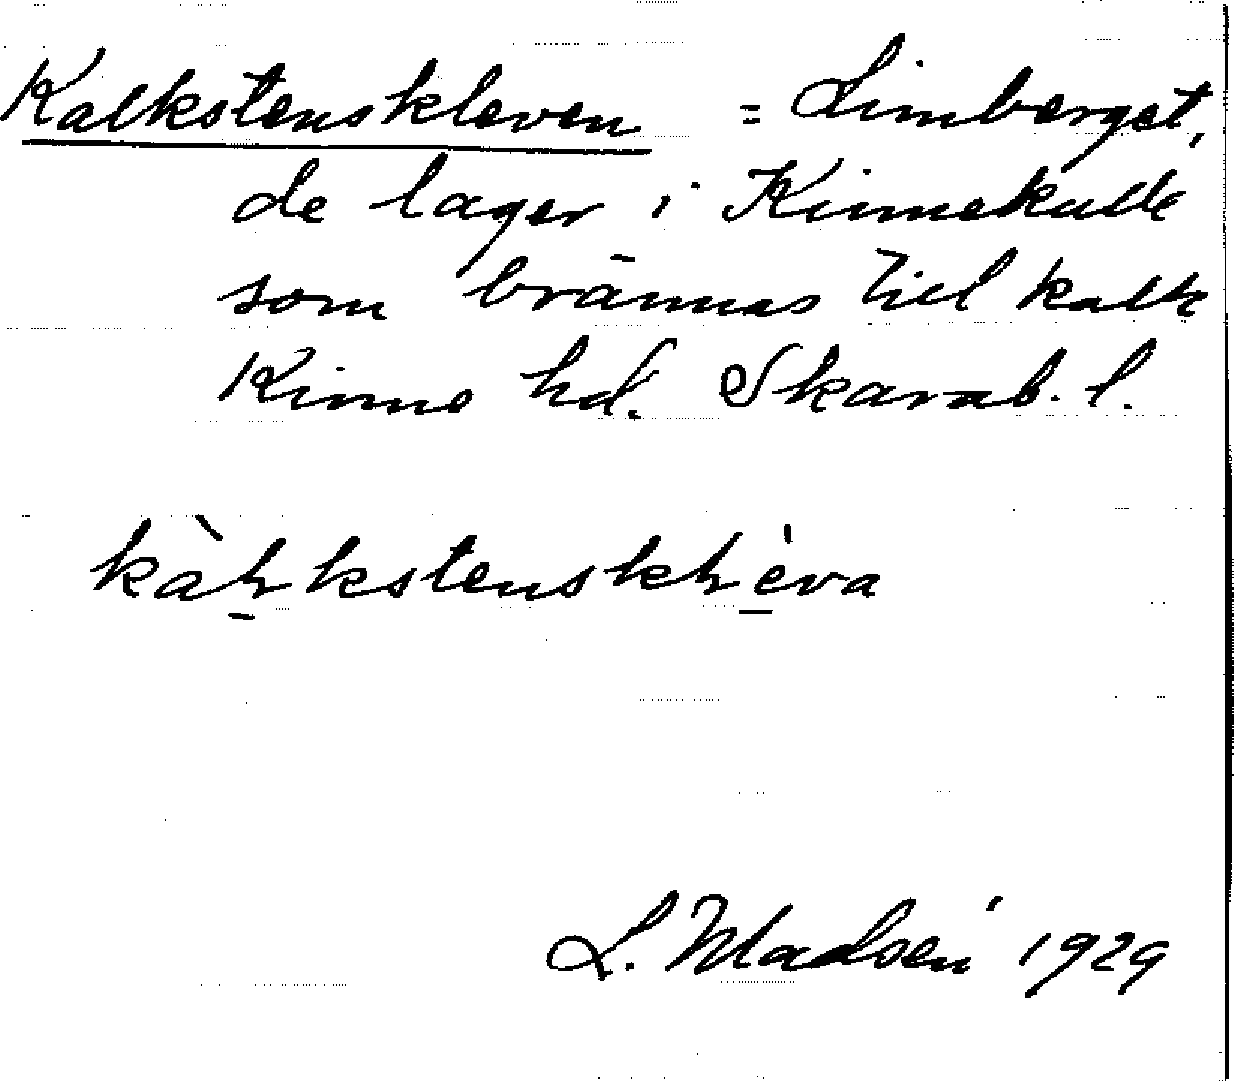 Kalkstenskleven = Limberget,
de lager i Kinnekulle
som brännas till kalk
Kinne hd. Skarab. l.
L. Madsén 1929